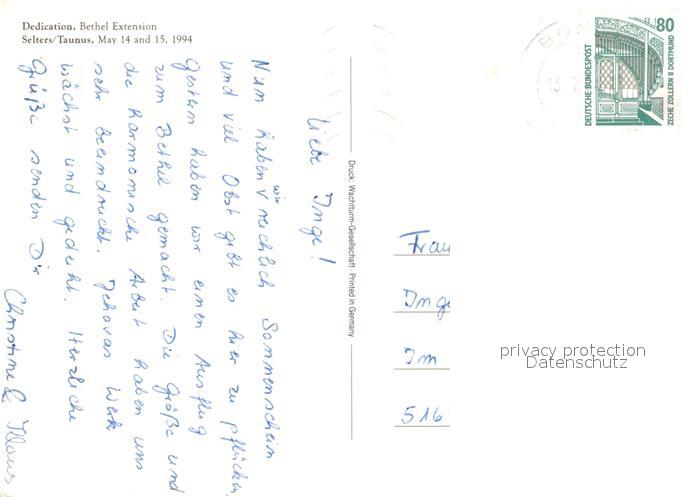 Dedication, Bethel Extension
Selters/Taunus, May 14 and 15, 1994
Liebe Inge!
Nun haben wir reichlich Sonnenschein
und viel Obst gibt es hier zu pflücken.
Gestern haben wir einen Ausflug
zum Bethel gemacht. Die Größe und
die harmonische Arbeit haben uns
sehr beeindruckt. Jehovas Werk
wächst und gedeiht. Herzliche
Grüße senden Dir
Christine & Klaus
Druck: Wachtturm-Gesellschaft · Printed in Germany
80
DEUTSCHE BUNDESPOST
ZECHE ZOLLERN II DORTMUND
Frau
Inge
Im
516
privacy protection
Datenschutz